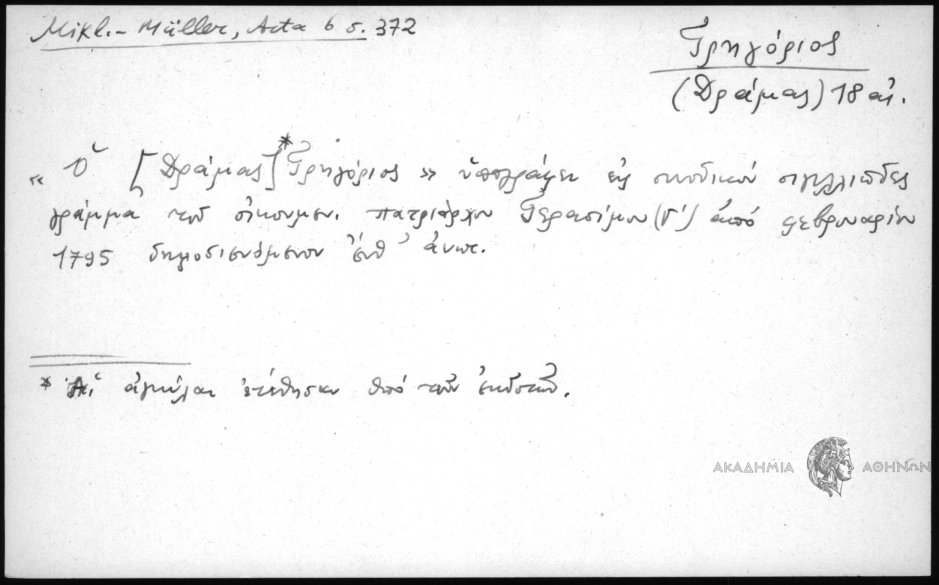 Mikl.- Müller, Acta 6 σ. 372
Γρηγόριος
(Δράμας) 18 αἰ.
« Ὁ [Δράμας]* Γρηγόριος » ὑπογράφει εἰς συνοδικόν σιγιλλιῶδες
γράμμα τοῦ οἰκουμεν. πατριάρχου Γερασίμου (Γ') ἀπό φεβρουαρίου
1795 δημοσιευόμενον ἔνθ' ἀνωτ.
* Αἱ ἀγκύλαι ἐτέθησαν ὑπό τῶν ἐκδοτῶν.
ΑΚΑΔΗΜΙΑ ΑΘΗΝΩΝ